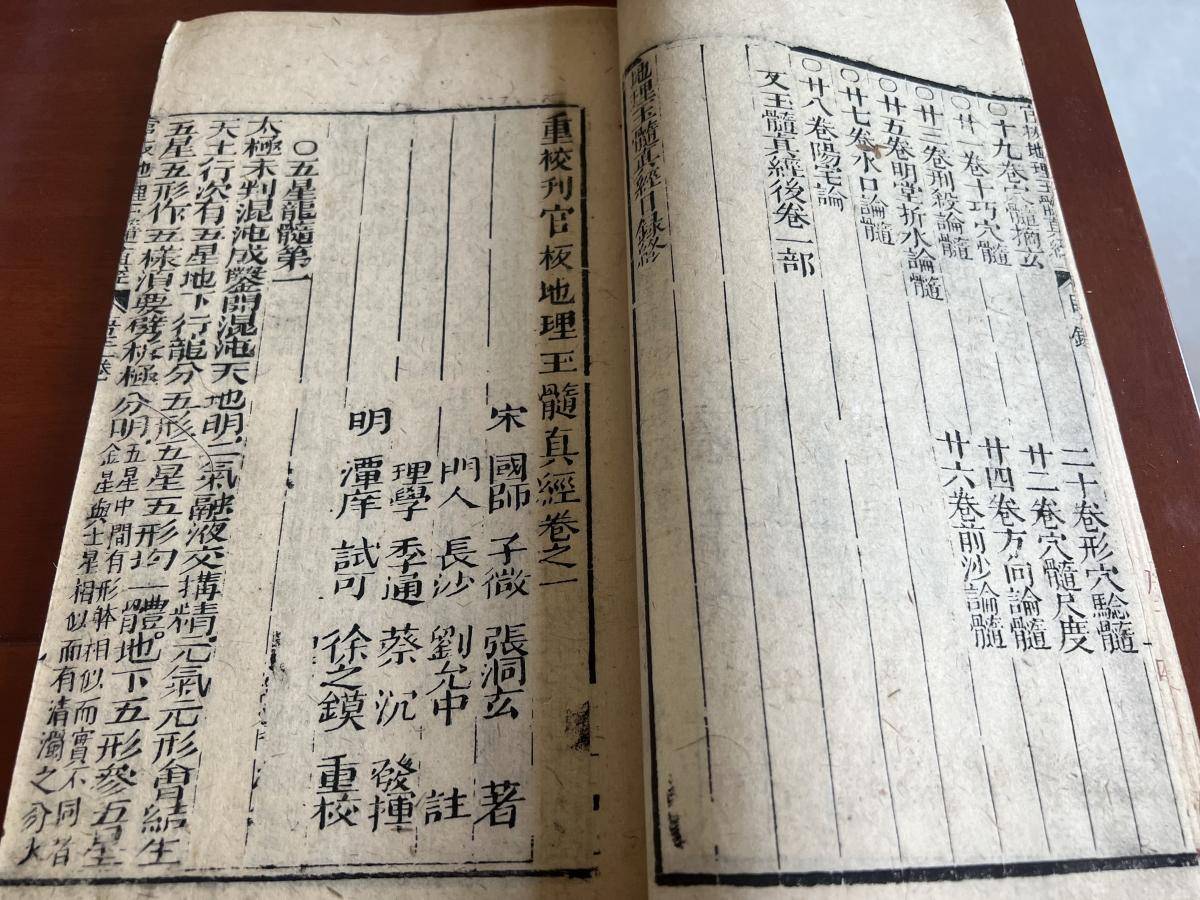 官板地理玉髓真經 目錄
〇十九卷穴髓摘玄 二十卷形穴驗髓
〇廿一卷十巧穴髓 廿二卷穴髓尺度
〇廿三卷刑殺論髓 廿四卷方向論髓
〇廿五卷明堂折水論髓 廿六卷前沙論髓
〇廿七卷水口論髓
〇廿八卷陽宅論
又玉髓真經後卷一部
地理玉髓真經目錄終
重校刊官板地理玉髓真經卷之一
宋 國師 子微 張洞玄 著
門人 長沙 劉允中 註
理學 季通 蔡沉 發揮
明 潭庠 試可 徐之鏌 重校
〇五星龍髓第一
太極未判混沌成鑿開混沌天地明二氣融液交搆精元氣元形會結生
天上行次有五星地下行龍分五形五星五形均一體地下五形參五星
五星五形作五樣須要劈脉極分明五星中間有形躰相似而實不同者
如金星與土星相似而有清濁之分火
官板地理玉髓真經